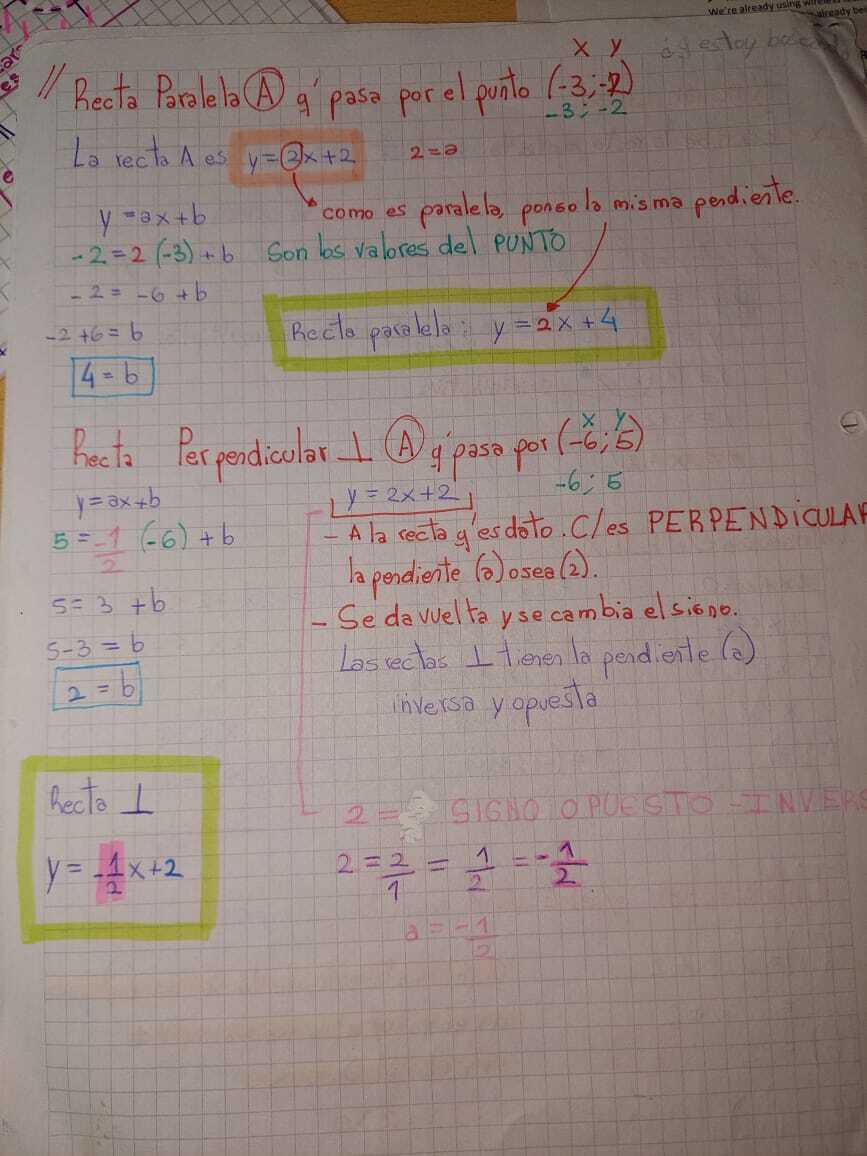 We're already using wireless
already be
X Y
// Recta Paralela Ⓐ q' pasa por el punto (-3;-2)
-3; -2
La recta A es y=2x+2 2=a
y=ax+b como es paralela, pongo la misma pendiente.
-2=2(-3)+b Son los valores del PUNTO
-2= -6 +b
-2+6=b Recta paralela: y=2x+4
4=b
x y
Recta Perpendicular ⊥ Ⓐ q' pasa por (-6;5)
-6; 5
y=ax+b y=2x+2
5=-1/2 (-6)+b - A la recta q' es dato. C/es PERPENDICULAR
la pendiente (a) osea (2).
5= 3 +b - Se da vuelta y se cambia el signo.
5-3=b Las rectas ⊥ tienen la pendiente (a)
2=b inversa y opuesta
Recta ⊥ 2= SIGNO OPUESTO - INVERS
y=-1/2x+2 2=2/1=1/2=-1/2
a=-1/2